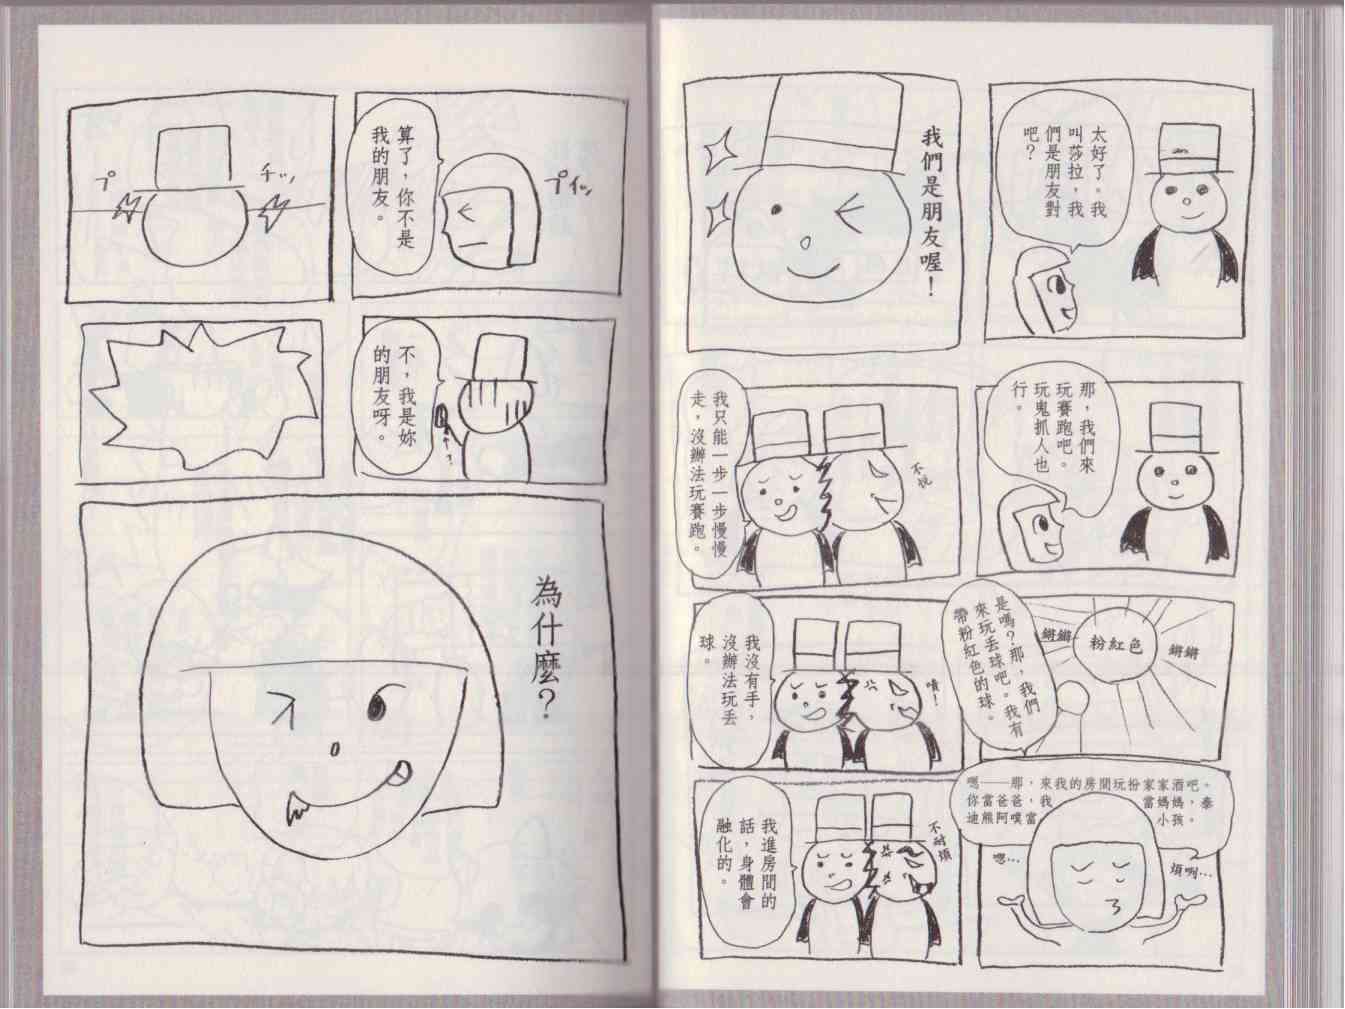 太好了。我
叫莎拉，我
們是朋友對
吧？
我們是朋友喔！
那，我們來
玩賽跑吧。
玩鬼抓人也
行。
我只能一步一步慢慢
走，沒辦法玩賽跑。
不悅
是嗎？那，我們
來玩丟球吧。我有
帶粉紅色的球。
鏘鏘
粉紅色
鏘鏘
我沒有手，
沒辦法玩丟
球。
嘖！
嗯——那，來我的房間玩扮家家酒吧。
你當爸爸，我當媽媽，泰
迪熊阿噗當小孩。
嗯…
煩啊…
我進房間的
話，身體會
融化的。
不耐煩
算了，你不是
我的朋友。
プイッ
プ
チッ
不，我是妳
的朋友呀。
？
為什麼？